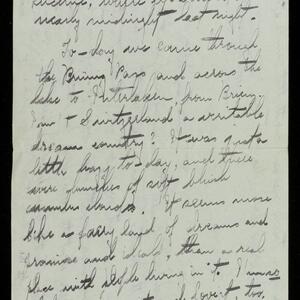 nearly midnight last night.
To-day we came through
the "Brünig" Pass and across the
lake to Interlaken, from Brienz.
Isn't Switzerland a veritable
dream country? It was just a
little hazy to-day, and there
were bunches of soft bluish
cumulus clouds. It seems more
like a fairy land of dreams and
romance and ideals, than a real
place with people living in it. I